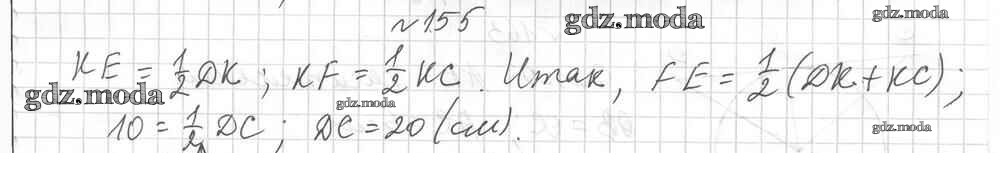 №155
gdz.moda
gdz.moda
KE = 1/2 DK; KF = 1/2 KC. Итак, FE = 1/2 (DK + KC);
gdz.moda
gdz.moda
10 = 1/2 DC; DC = 20 (см).
gdz.moda